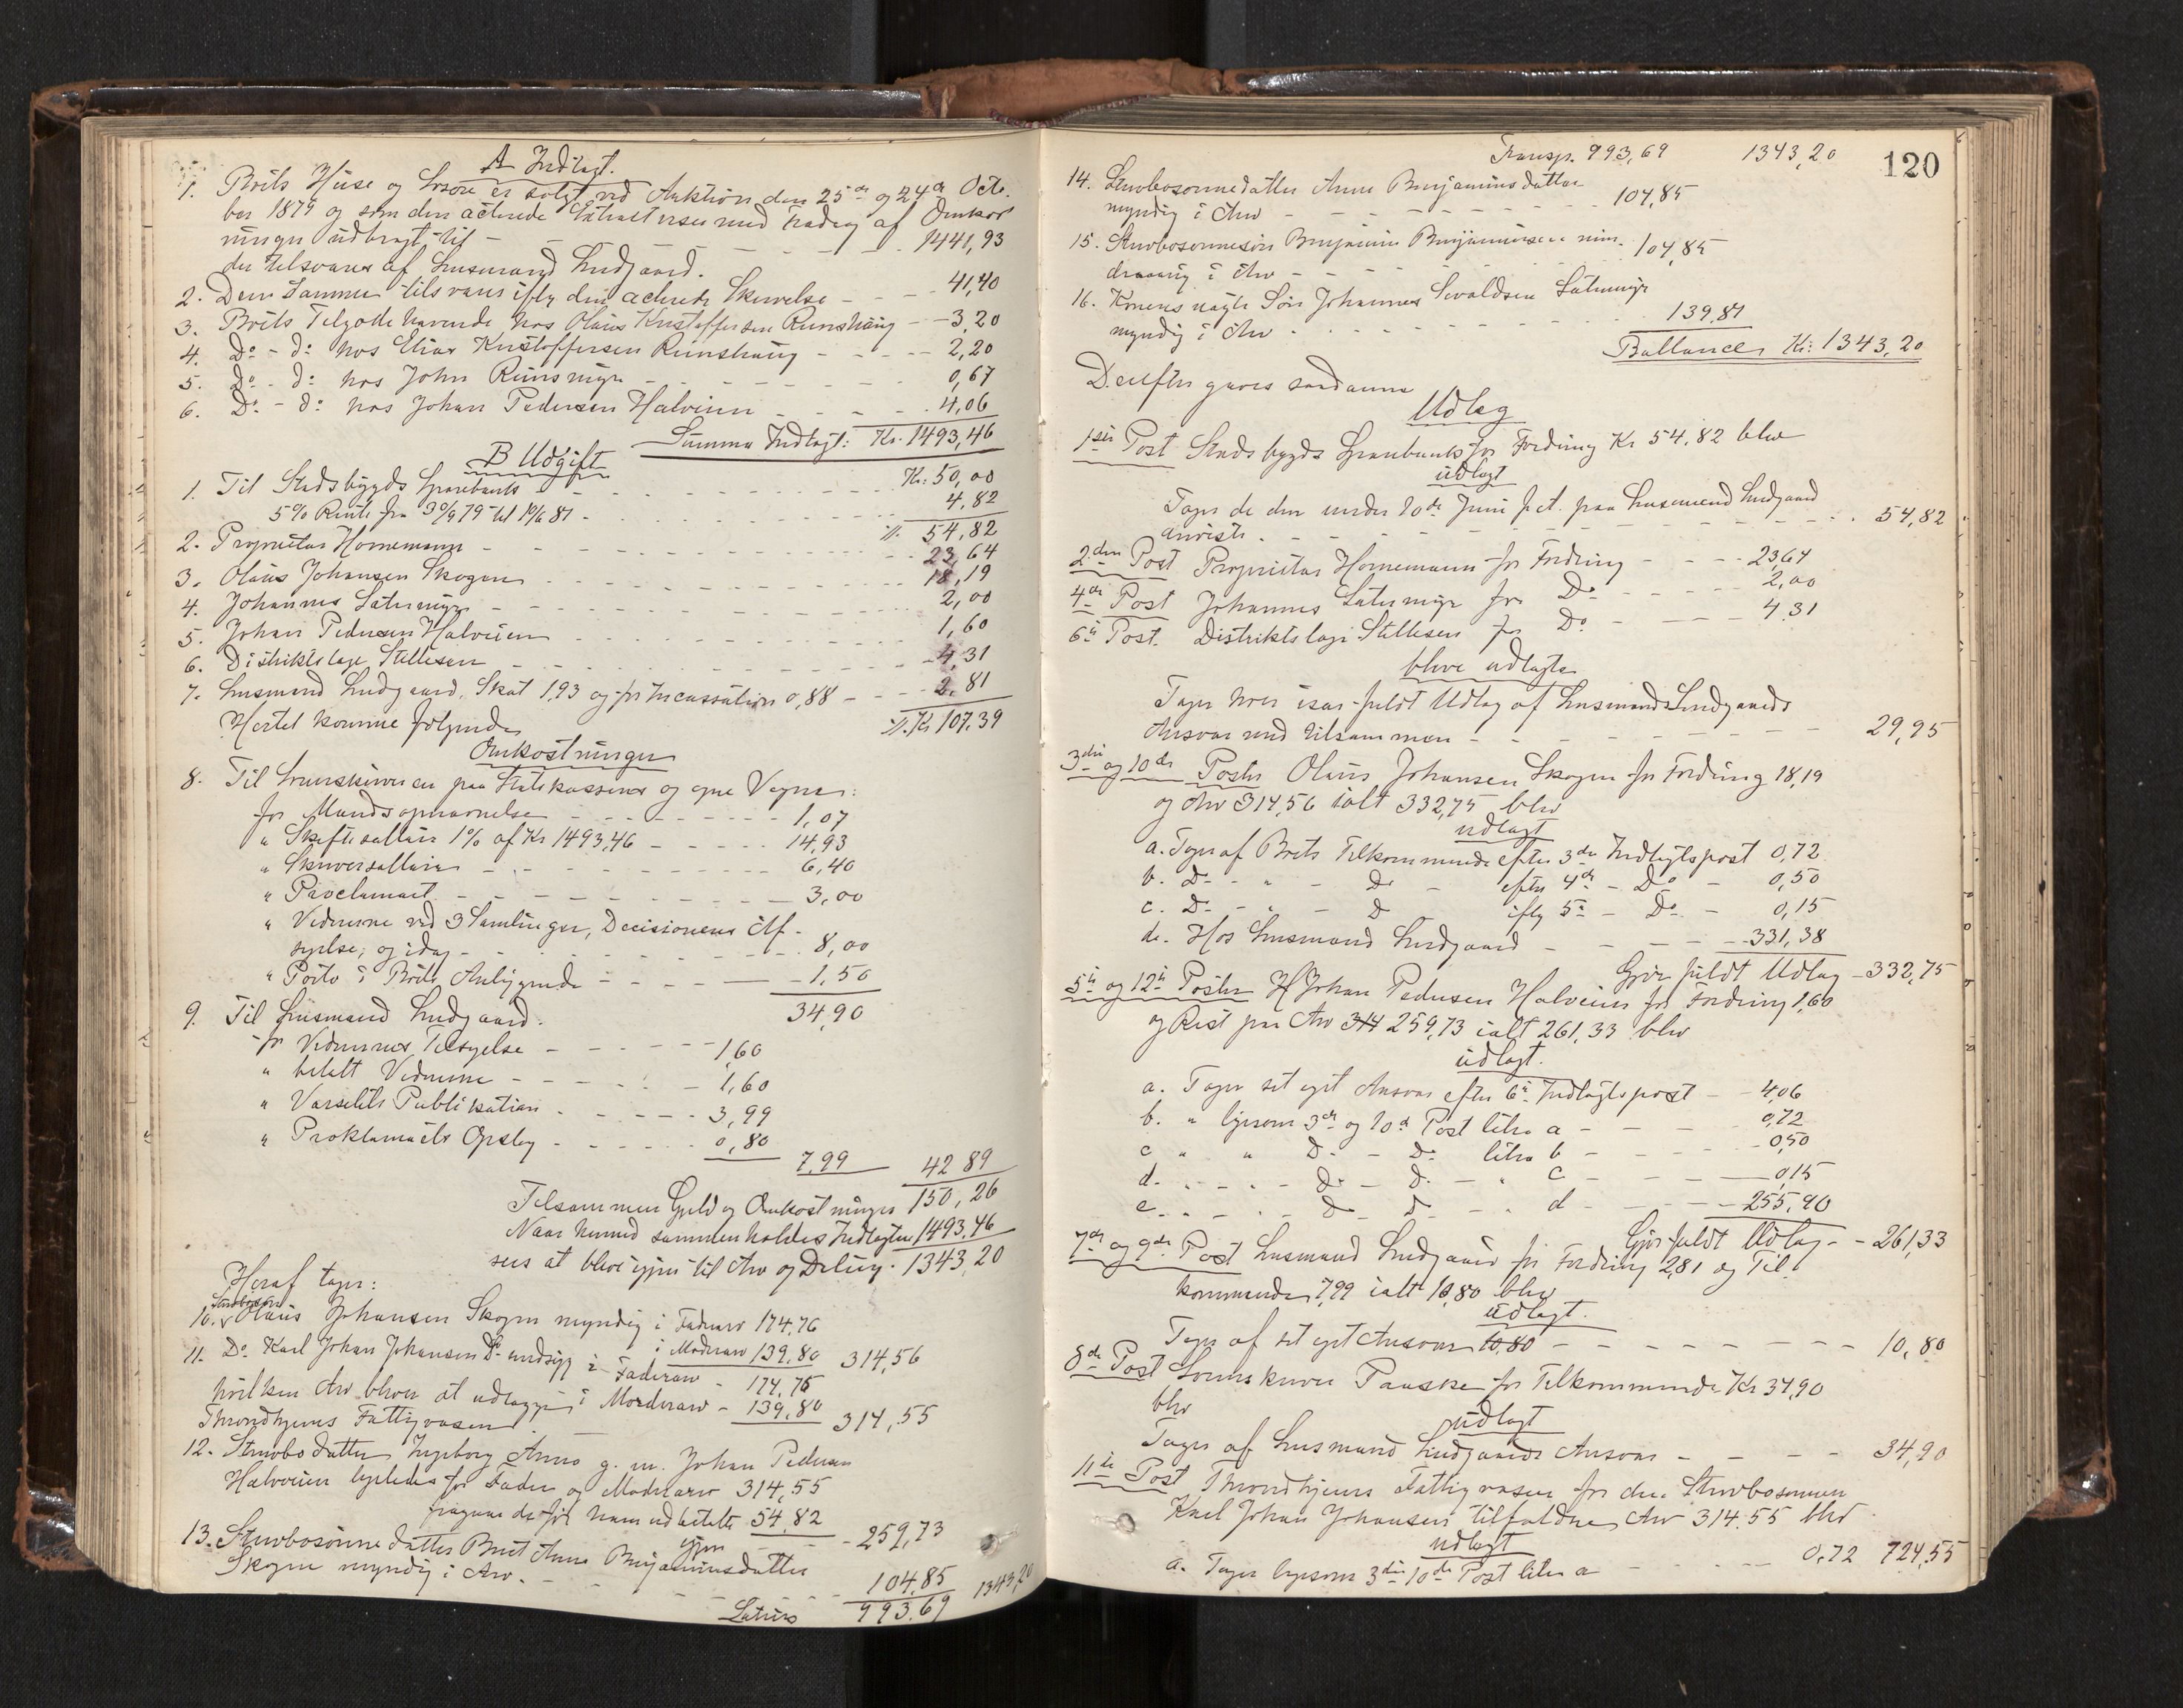 A Indtægt.
1. Boets Huse og Løsøre er solgt ved Auktion den 25de og 24de Octo-
ber 1879 og som den acterede Extraktviser med Fradrag af Omkost
ninger udbragt til - - - 1441,93
der tilsvares af Lensmand Lindgaard.
2. Den Samme tilsvarer iflg den acterede Skrivelse - - - 41,40
3. Boets Tilgodehavende hos Olaus Kristoffersen Rønshaug - - 3,20
4. Do - do hos Elias Kristoffersen Rønshaug - - - 2,20
5. Do - do hos John Rønsmyr - - - 0,67
6. Do - do hos Johan Pedersen Halveien - - - 4,06
Summa Indtægt: Kr. 1493,46
B Udgift
1. Til Stadsbygds Sparebank - - - Kr: 50,00
5% Rente fra 30/9 79 til 10/6 81 - - - 4,82
54,82
2. Proprietær Hornemann - - - 23,64
3. Olaus Johansen Skogen - - - 18,19
4. Johannes Sætermyr - - - 2,00
5. Johan Pedersen Halveien - - - 1,60
6. Distriktslæge Stillesen - - - 4,31
7. Lensmand Lindgaard, Skat 1,93 og for Incassation 0,88 - - - 2,81
Hertil komme følgende Kr 107,39
Omkostninger
8. Til Sorenskriveren paa Statskassens og egne Vegne:
for Mandsopnævnelse - - - 1,07
" Skiftesallair 1% af Kr 1493,46 - - - 14,93
" Skriversallair - - - 6,40
" Proclamaet - - - 3,00
" Vidnerne ved 3 Samlinger, Decisionens Af-
sigelse, og idag - - - 8,00
" Porto i Boets Anliggende - - - 1,50
34,90
9. Til Lensmand Lindgaard.
for Vidnernes Tilsigelse - - - 1,60
" betalt Vidnerne - - - 1,60
" Varselets Publikation - - - 3,99
" Proklamaets Opslag - - - 0,80
7,99 42 89
Tilsammen Gjeld og Omkostninger 150,26
Naar hermed sammenholdes Indtægten 1493,46
sees at blive igjen til Arv og Deling. 1343,20
Heraf tager:
10. Stervbosøn Olaus Johansen Skogen myndig i Fadrearv 174,76
i Modrearv 139,80 314,56
11. Do. Karl Johan Johansen Do. i Faderarv - 174,75
hvilken Arv bliver at udlægge i Moderarv - 139,80 314,55
Throndhjems Fattigvæsen
12. Stervbodatter Ingeborg Anna g. m. Johan Pedersen
Halveien ligeledes for Fader og Moderarv 314,55
fragaaer de for ham udbetalte 54,82
igjen - - - 259,73
13. Stervbosønnedatter Brit Anna Benjaminsdatter
Skogen myndig i Arv. - - - 104,85 1343,20
Latus 993,69
Transp. 993,69 1343,20 120
14. Stervbosønnedatter Anne Benjaminsdatter
myndig i Arv - - - 104,85
15. Stervbosønnesøn Benjamin Benjaminsen min-
dreaarig i Arv - - - 104,85
16. Konens uægte Søn Johannes Sivaldsen Sætermyr
myndig i Arv - - - 139,81
Ballancer Kr: 1343,20
Derefter gjøres saadanne
Udlæg
1ste Post Stadsbygds Sparebank for Fordring Kr 54,82 blev
udlagt
Tager de den under 10de Juni f. A. paa Lensmand Lindgaard
anviste - - - 54,82
2den Post Proprietær Hornemann for Fordring - - - 23,64
4de Post Johannes Sætermyr for Do - - - 2,00
6te Post. Distriktslæge Stillesen for Do - - - 4,31
bleve udlagte
Tager hver især fuldt Udlæg af Lensmand Lindgaards
Ansvar med tilsammen - - - 29,95
3die og 10de Poster Olaus Johansen Skogen for Fordring 18,19
og Arv 314,56 ialt 332,75 blev
udlagt
a. Tager af Boets Tilkommende efter 3die Indtægtspost 0,72
b. Do - " - Do - efter 4de - Do - 0,50
c. Do - " - D iflg 5te - Do - 0,15
d. Hos Lensmand Lindgaard - - - 331,38
Gjør fuldt Udlæg - 332,75
5te og 12te Poster Johan Pedersen Halveien for Fordring 1,60
og Rest paa Arv 314 259,73 ialt 261,33 blev
udlagt.
a. Tager sit eget Ansvar efter 6te Indtægtspost - - 4,06
b. " ligesom 3die og 10de Post litra a - - - 0,72
c " " D. - Do litra b - - - 0,50
d. . - - - D. - D. - " c - - - 0,15
e. . - - - D D - . d - - - 255,90
Gjør fuldt Udlæg - - 261,33
7de og 9de Post Lensmand Lindgaard for Fordring 2,81 og Til-
kommende 7,99 ialt 10,80 blev
udlagt.
Tager af sit eget Ansvar 10,80 - - - 10,80
8de Post Sorenskriver Pauske for Tilkommende Kr 34,90
blev
udlagt
Tages af Lensmand Lindgaards Ansvar - - - 34,90
11te Post Throndhjems Fattigvæsen for den Stervbosønnen
Karl Johan Johansen tilfaldne Arv 314.55 blev
udlagt
a. Tager ligesom 3die 10de Post litra a - - - 0,72 724,55